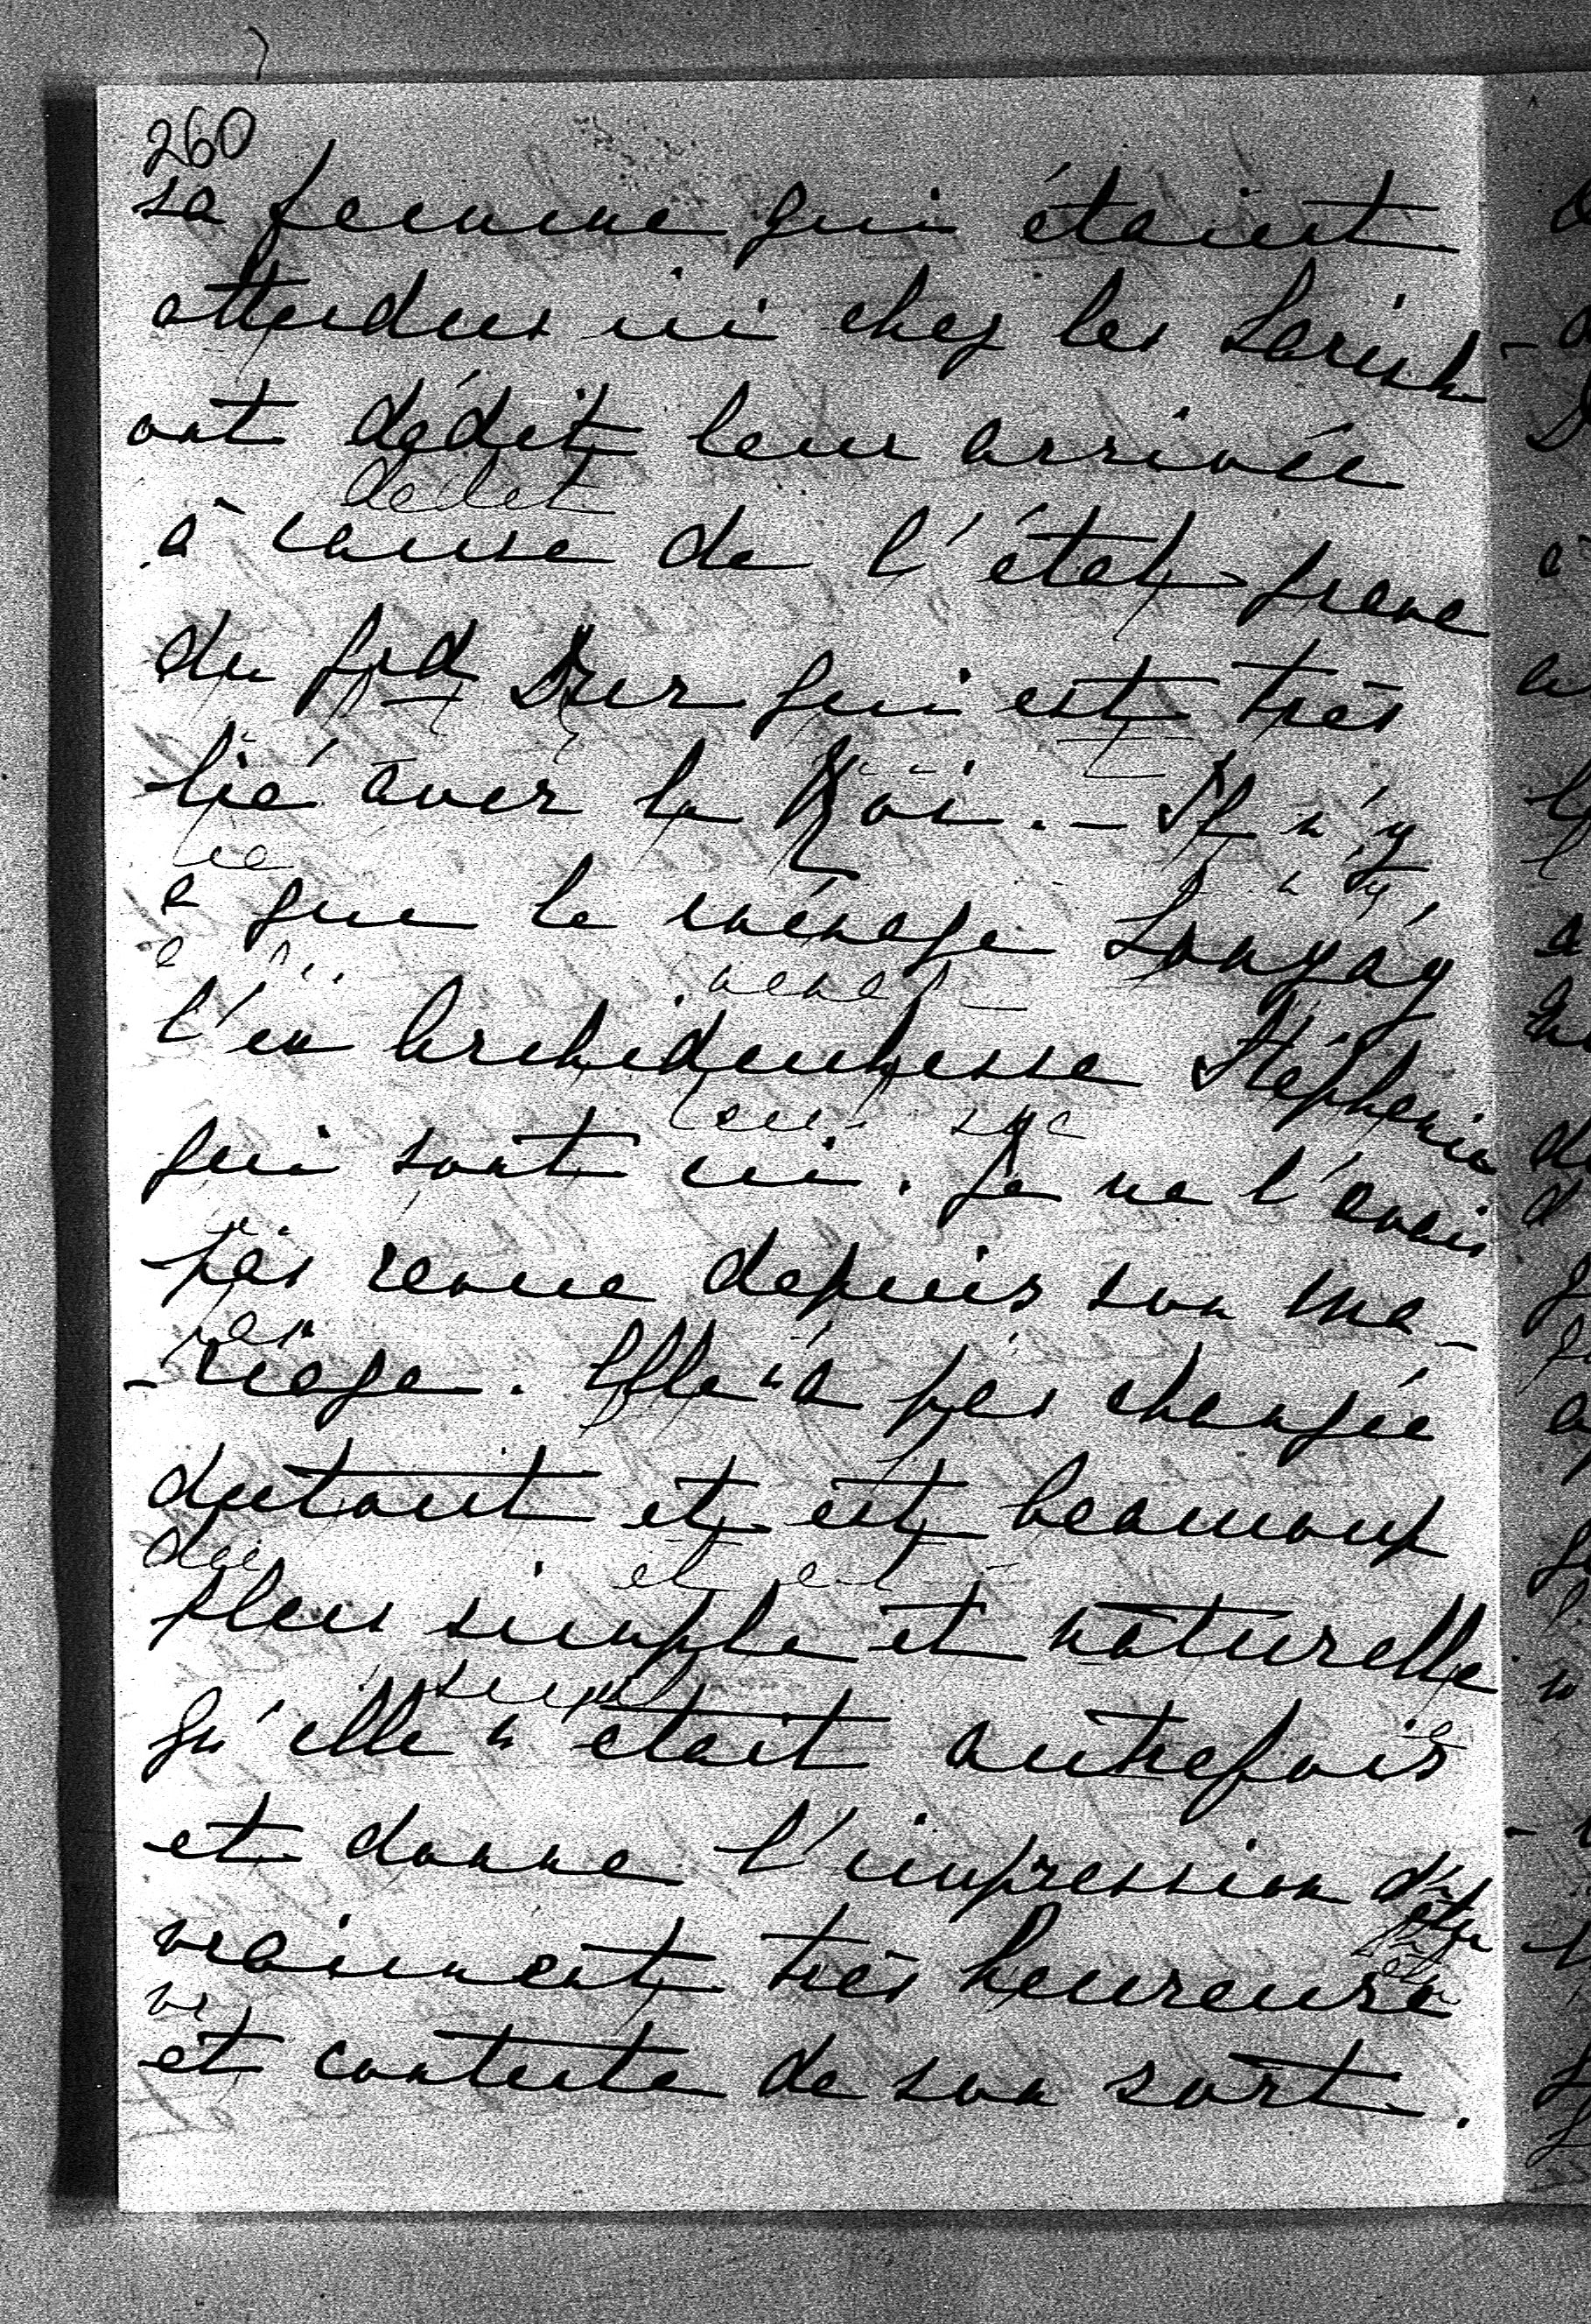 260
sa femme qui étaient
attendus ici chez les Larisch
ont dédit leur arrivée
à cause de l'état grave
du grd Duc qui est très
lié avec le Roi. - Il n'y
a que le ménage Lonyáy
l'ex Archiduchesse Stéphanie
qui sont ici. Je ne l'avais
pas revue depuis son ma-
-riage. Elle n'a pas changée
dutout et est beaucoup
plus simple et naturelle
qu'elle n'était autrefois
et donne l'impression d'être
vraiment très heureuse
et contente de son sort.